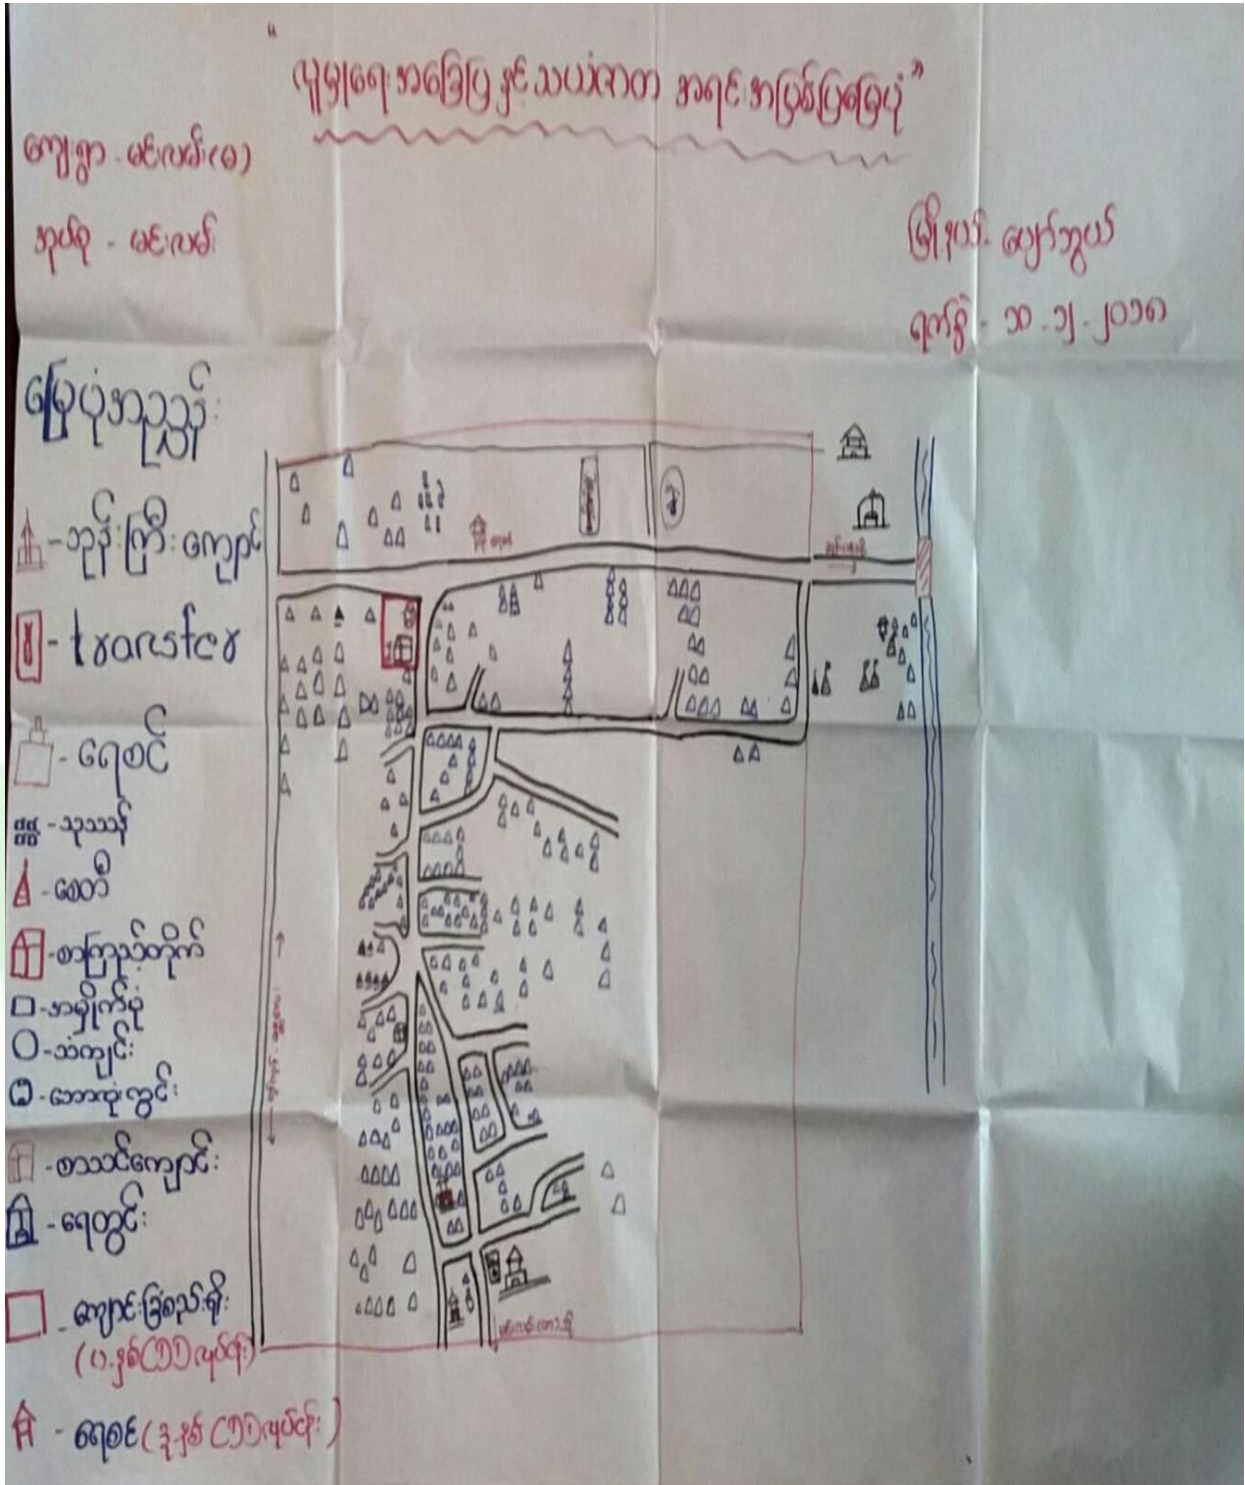 "လူမှုရေးအခြေပြနှင့်သယံဇာတ အရင်းအမြစ်ပြမြေပုံ"
ကျေးရွာ - မင်းလမ်း(မ)
အုပ်စု - မင်းလမ်း
မြို့နယ် - ပျော်ဘွယ်
ရက်စွဲ - ၁၁ - ၁၂ - ၂၀၁၈
မြေပုံအညွှန်း
- ဘုန်းကြီးကျောင်း
- transfer
- ရေစင်
- သုဿန်
- စေတီ
- စာကြည့်တိုက်
- အမှိုက်ပုံ
- သံကျင်း
- ဘောလုံးကွင်း
- စာသင်ကျောင်း
- ရေတွင်း
- ကျောင်းခြံစည်းရိုး
(ပ-နှစ် CDD လုပ်ငန်း)
- ရေစင် (ဒု-နှစ် CDD လုပ်ငန်း)